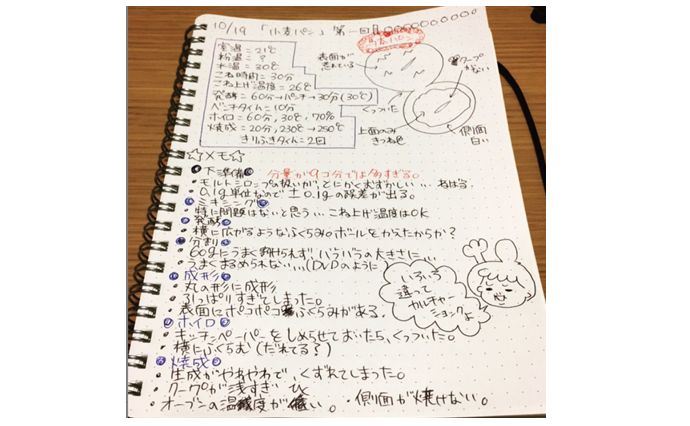 10/19 「小麦パン」 第一回目
室温=21℃
粉温=?
水温=30℃
こね時間=30分
こね上げ温度=26℃
発酵=60分→パンチ→30分(30℃)
ベンチタイム=10分
ホイロ=60分,30℃,70%
焼成=20分,230℃→250℃
きりふきタイム=2回
表面が
くっついた
クープが
ない
上面のみ
きつね色
側面
白い
☆メモ☆
下準備
分量が9コ分では多すぎる。
・モルトシロップの扱いが、とにかくむずかしい...ねばる。
・0.1g単位なので±0.1gの誤差が出る。
ミキシング
・特に問題はないと思う...こね上げ温度はOK
発酵
・横に広がるようなふくらみ。ボールをかえたからか?
分割
・60gにうまく分けられず、いろいろの大きさに...
・うまくまるめられない...(DVDのように
成形
・丸の形に成形
・引っぱりすぎてしまった。
・表面にボコボコふくらみがある。
ホイロ
・キッチンペーパーをしめらせておいたら、くっついた。
・横にふくらむ(だれてる?)
焼成
・生成がやわやわで、くずれてしまった。
・クープが浅すぎ
・オーブンの温度が低い。 ・側面が焼けない。
いろいろ
違って
カルチャー
ショックよ